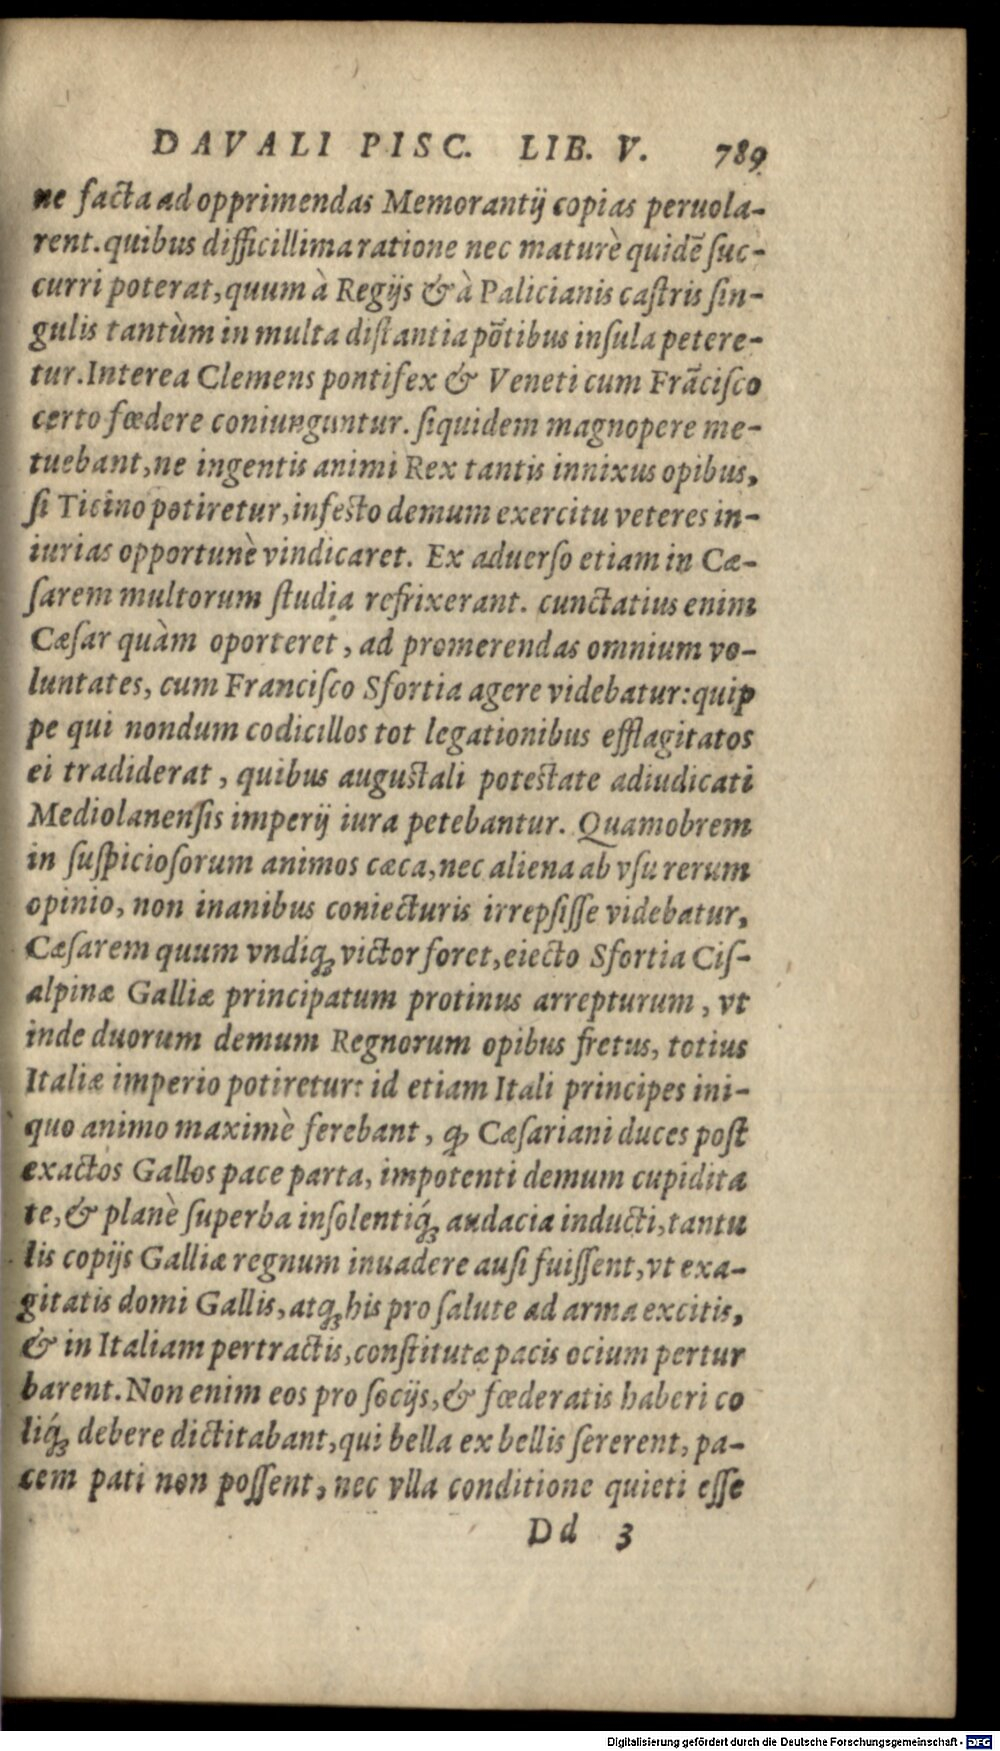 DAVALI PISC. LIB. V. 789
ne facta ad opprimendas Memorantij copias peruola-
rent. quibus difficillima ratione nec maturè quidẽ ſuc-
curri poterat, quum à Regijs & à Palicianis caſtris ſin-
gulis tantùm in multa diſtantia põtibus inſula petere-
tur. Interea Clemens pontifex & Veneti cum Frãciſco
certo fœdere coniunguntur. ſiquidem magnopere me-
tuebant, ne ingentis animi Rex tantis innixus opibus,
ſi Ticino potiretur, infeſto demum exercitu veteres in-
iurias opportunè vindicaret. Ex aduerſo etiam in Cæ-
ſarem multorum ſtudia refrixerant. cunctatius enim
Cæſar quàm oporteret, ad promerendas omnium vo-
luntates, cum Franciſco Sfortia agere videbatur: quip
pe qui nondum codicillos tot legationibus efflagitatos
ei tradiderat, quibus auguſtali poteſtate adiudicati
Mediolanenſis imperij iura petebantur. Quamobrem
in ſuſpicioſorum animos cæca, nec aliena ab vſu rerum
opinio, non inanibus coniecturis irrepſiſſe videbatur,
Cæſarem quum vndiq; victor foret, eiecto Sfortia Ciſ-
alpinæ Galliæ principatum protinus arrepturum, vt
inde duorum demum Regnorum opibus fretus, totius
Italiæ imperio potiretur: id etiam Itali principes ini-
quo animo maximè ferebant, ꝙ Cæſariani duces poſt
exactos Gallos pace parta, impotenti demum cupidita
te, & planè ſuperba inſolentiq́; audacia inducti, tantu
lis copijs Galliæ regnum inuadere auſi fuiſſent, vt exa-
gitatis domi Gallis, atq; his pro ſalute ad arma excitis,
& in Italiam pertractis, conſtitutæ pacis ocium pertur
barent. Non enim eos pro ſocijs, & fœderatis haberi co
liq́; debere dictitabant, qui bella ex bellis ſererent, pa-
cem pati non poſſent, nec vlla conditione quieti eſſe
Dd 3
Digitalisierung gefördert durch die Deutsche Forschungsgemeinschaft - DFG